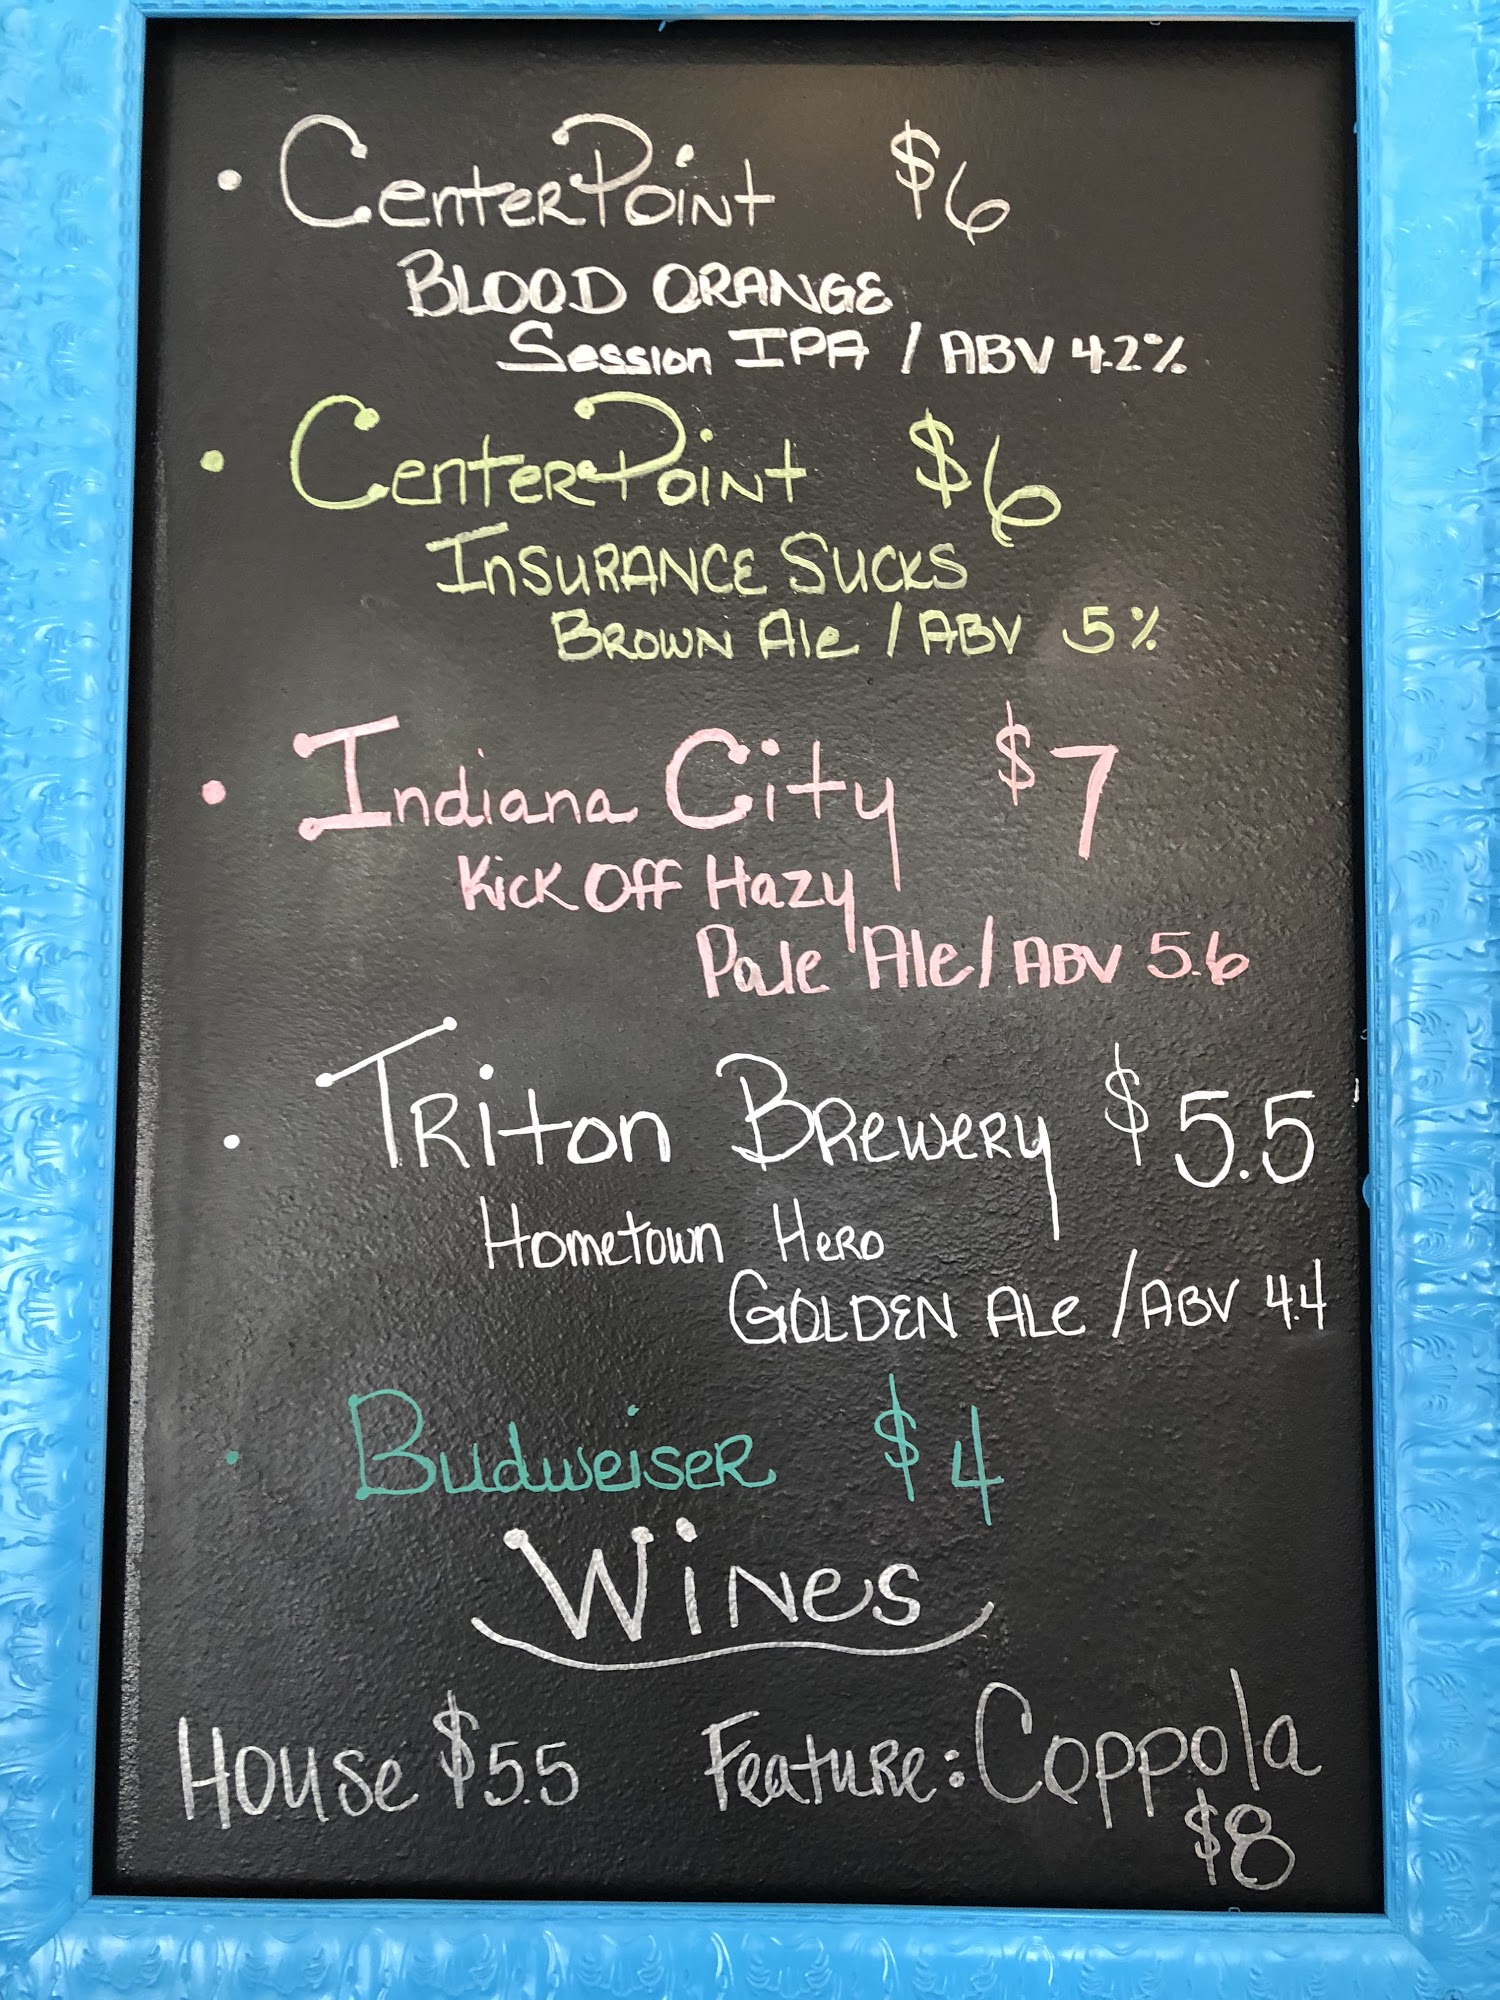 • CenterPoint $6
Blood Orange
Session IPA / ABV 4.2%
• CenterPoint $6
Insurance Sucks
Brown Ale / ABV 5%
• Indiana City $7
Kick Off Hazy
Pale Ale / ABV 5.6
• Triton Brewery $5.5
Hometown Hero
Golden Ale / ABV 4.4
• Budweiser $4
Wines
House $5.5 Feature: Coppola
$8